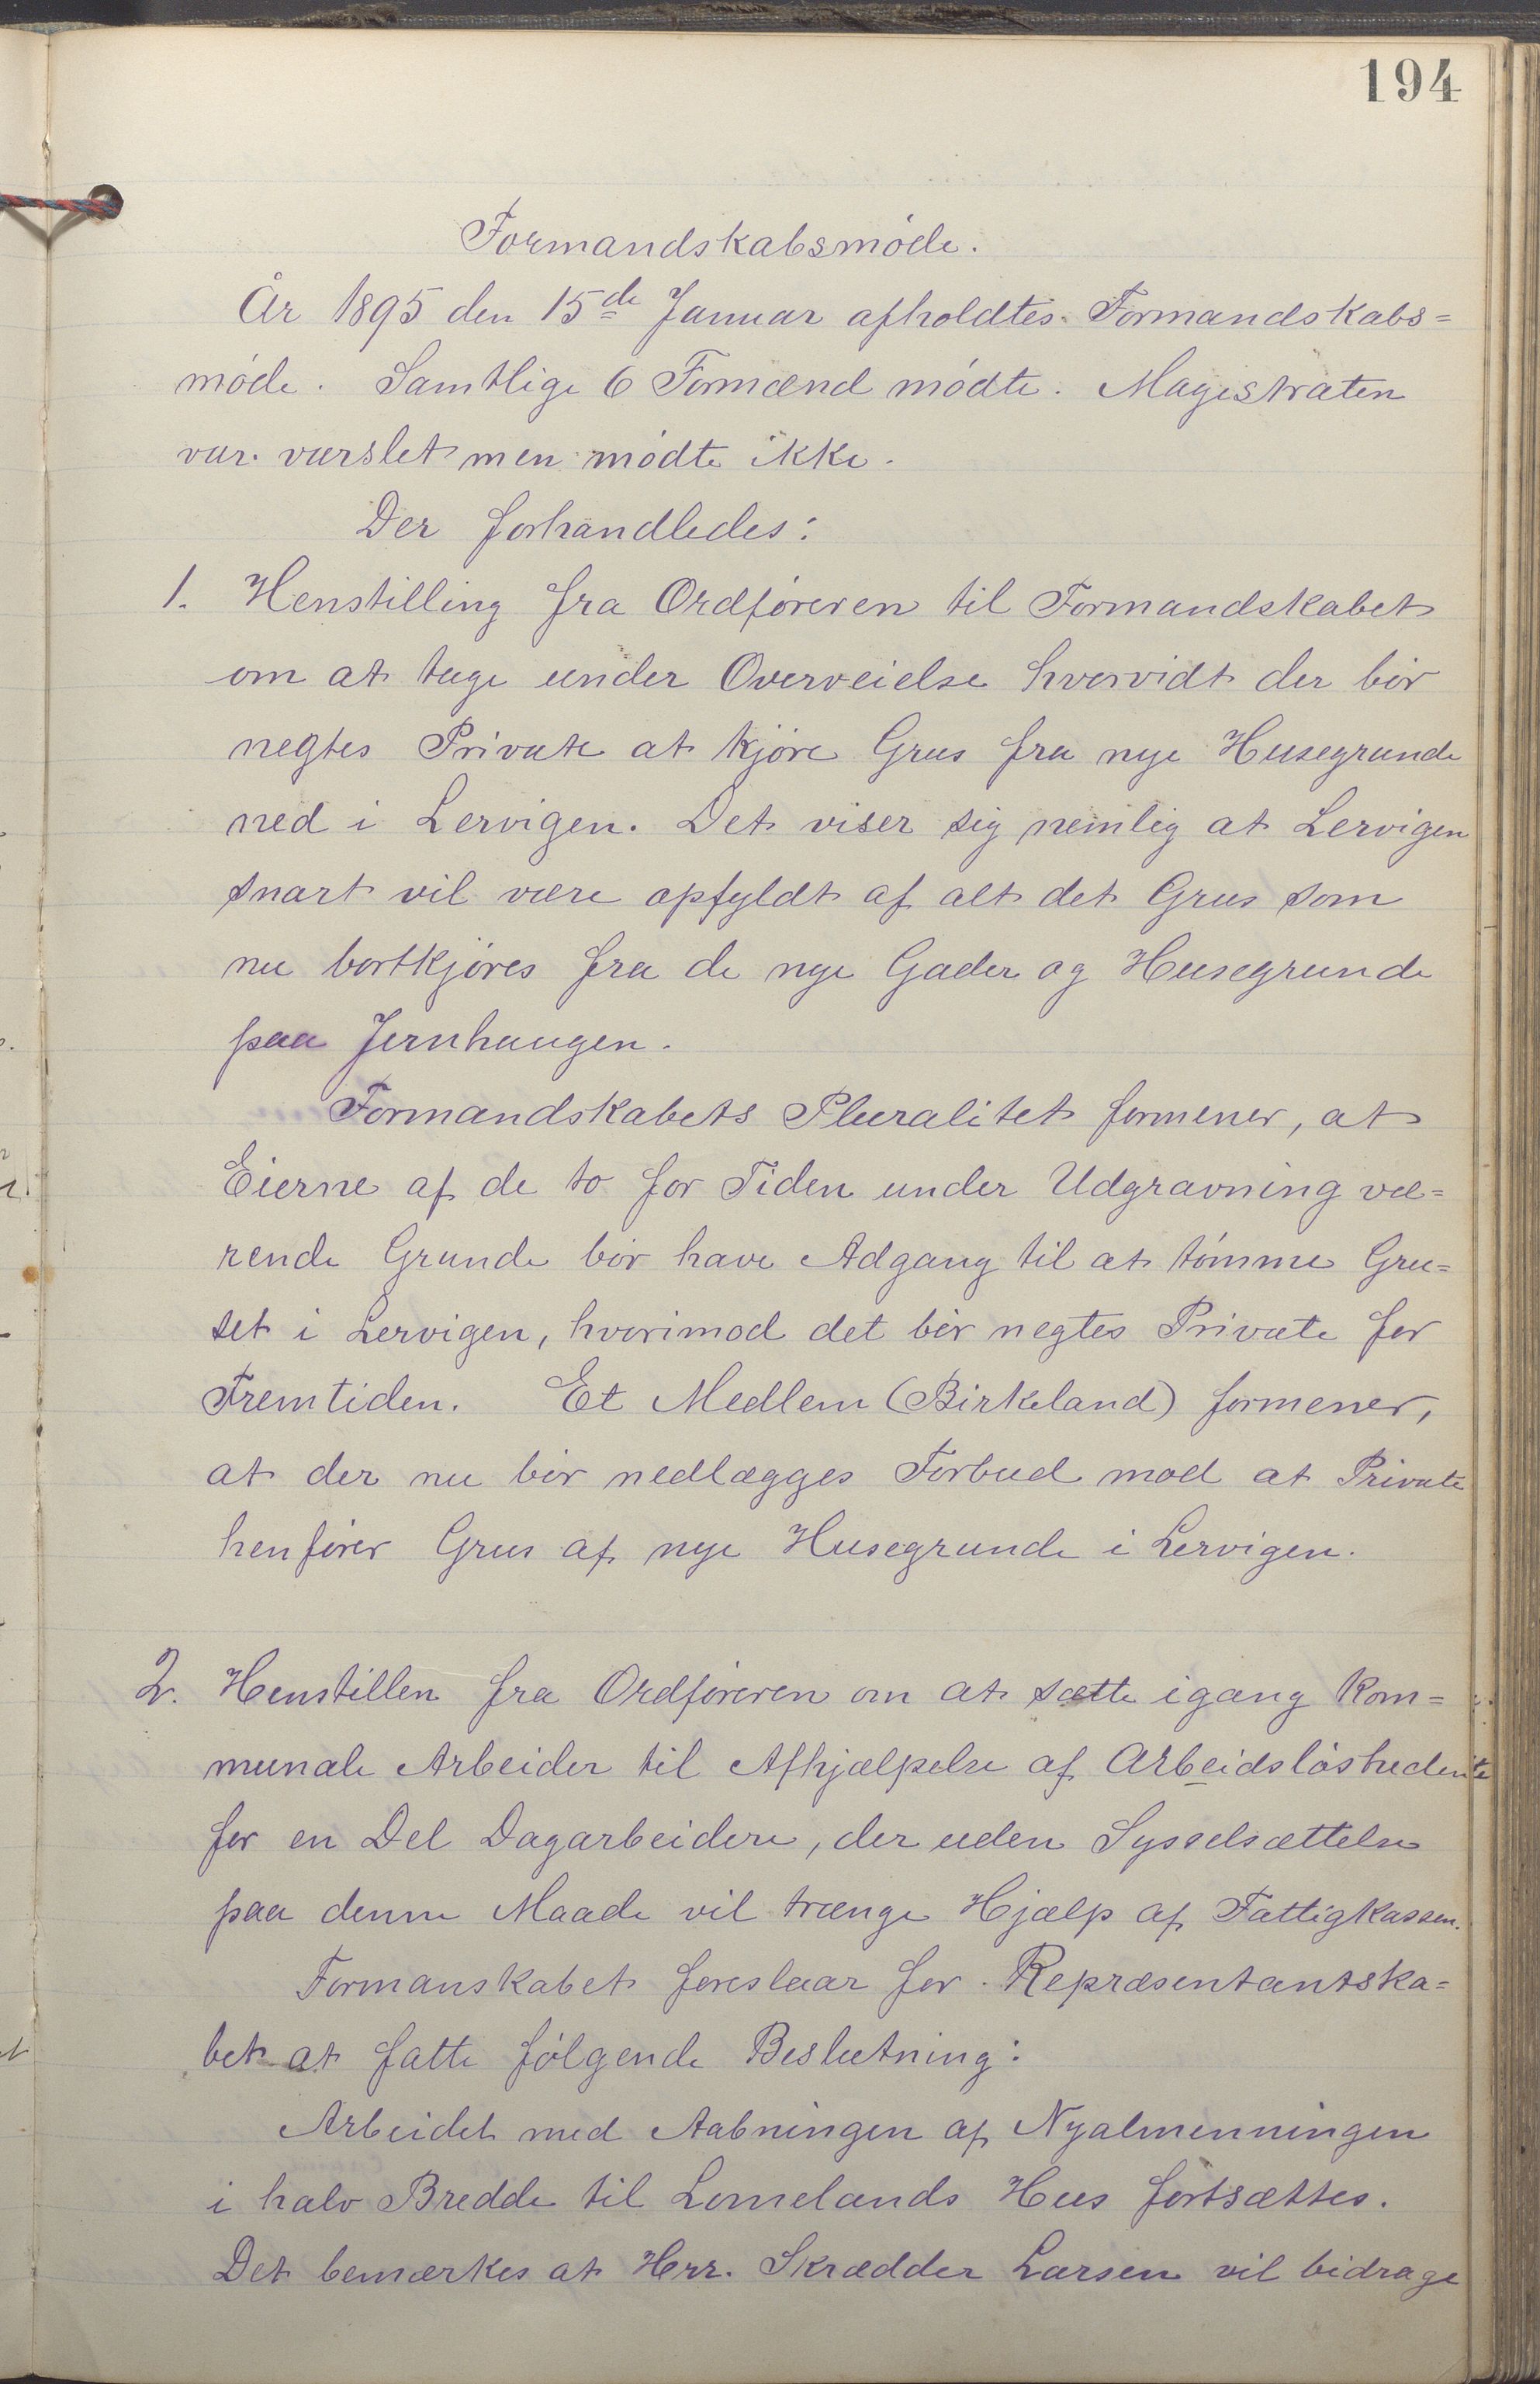 194
Formandskabsmøde.
År 1895 den 15de Januar afholdtes Formandskabs=
møde. Samtlige 6 Formænd mødte. Magistraten
var varslet men mødte ikke.
Der forhandledes:
1. Henstilling fra Ordføreren til Formandskabet
om at tage under Overveielse hvorvidt der bør
negtes Private at kjøre Grus fra nye Husegrunde
ned i Lervigen. Det viser sig nemlig at Lervigen
snart vil være opfyldt af alt det Grus som
nu bortkjøres fra de nye Gader og Husegrunde
paa Jernhaugen.
Formandskabets Pluralitet formener, at
Eierne af de to for Tiden under Udgravning væ=
rende Grunde bør have Adgang til at tømme Gru=
set i Lervigen, hvorimod det bør negtes Private for
Fremtiden. Et Medlem (Birkeland) formener,
at der nu bør nedlægges Forbud mod at Private
henfører Grus af nye Husegrunde i Lervigen.
2. Henstillen fra Ordføreren om at sætte igang kom=
munale Arbeider til Afhjælpelse af Arbeidsløsheden
for en Del Dagarbeidere, der uden Sysselsættelse
paa denne Maade vil trænge Hjælp af Fattigkassen.
Formanskabet foreslaar for Repræsentantska=
bet at fatte følgende Beslutning:
Arbeidet med Aabningen af Nyalmenningen
i halv Bredde til Lomelands Hus fortsættes.
Det bemærkes at Herr. Skrædder Larsen vil bidrage